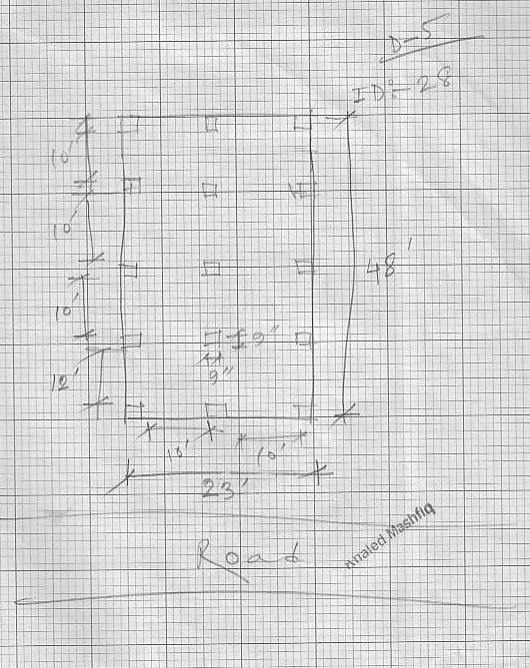 D-5
ID:- 28
10'
10'
48'
10'
9"
12'
9"
10'
10'
23'
Road
Khaled Mashfiq